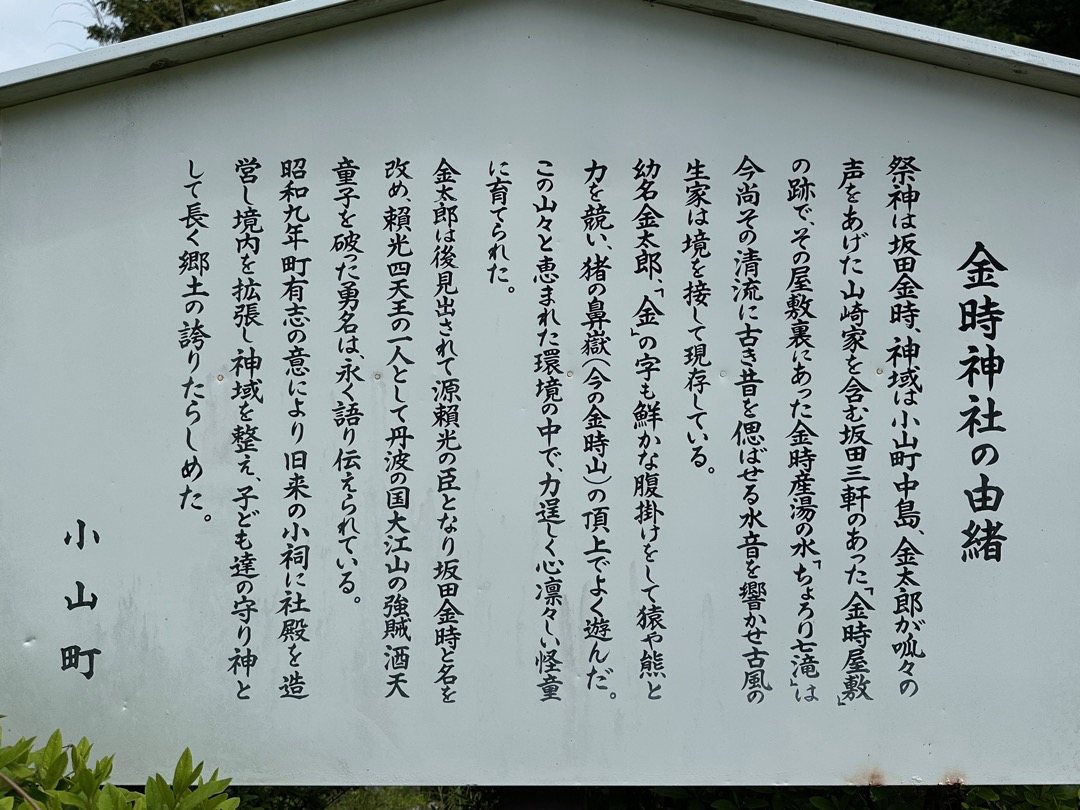 金時神社の由緒
祭神は坂田金時、神域は小山町中島、金太郎が呱々の
声をあげた山崎家を含む坂田三軒のあった「金時屋敷」
の跡で、その屋敷裏にあった金時産湯の水「ちょろり七滝」は
今尚その清流に古き昔を偲ばせる水音を響かせ古風の
生家は境を接して現存している。
幼名金太郎、「金」の字も鮮かな腹掛けをして猿や熊と
力を競い、猪の鼻嶽(今の金時山)の頂上でよく遊んだ。
この山々と恵まれた環境の中で、力逞しく心凛々しい怪童
に育てられた。
金太郎は後見出されて源頼光の臣となり坂田金時と名を
改め、頼光四天王の一人として丹波の国大江山の強賊酒天
童子を破った勇名は、永く語り伝えられている。
昭和九年町有志の意により旧来の小祠に社殿を造
営し境内を拡張し神域を整え、子ども達の守り神と
して長く郷土の誇りたらしめた。
小山町